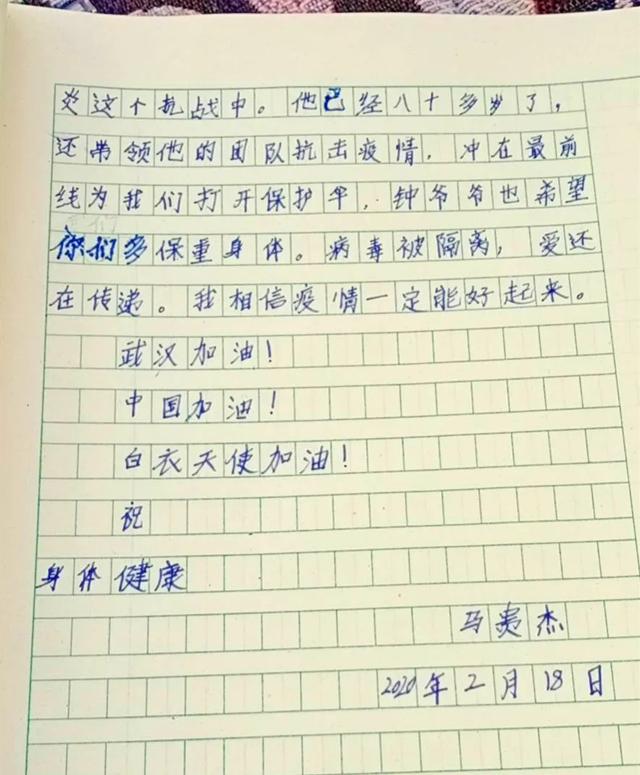 炎这个抗战中。他已经八十多岁了，
还带领他的团队抗击疫情，冲在最前
线为我们打开保护伞，钟爷爷也希望
你们多保重身体。病毒被隔离，爱还
在传递。我相信疫情一定能好起来。
武汉加油！
中国加油！
白衣天使加油！
祝
身体健康
马贵杰
2020年2月18日